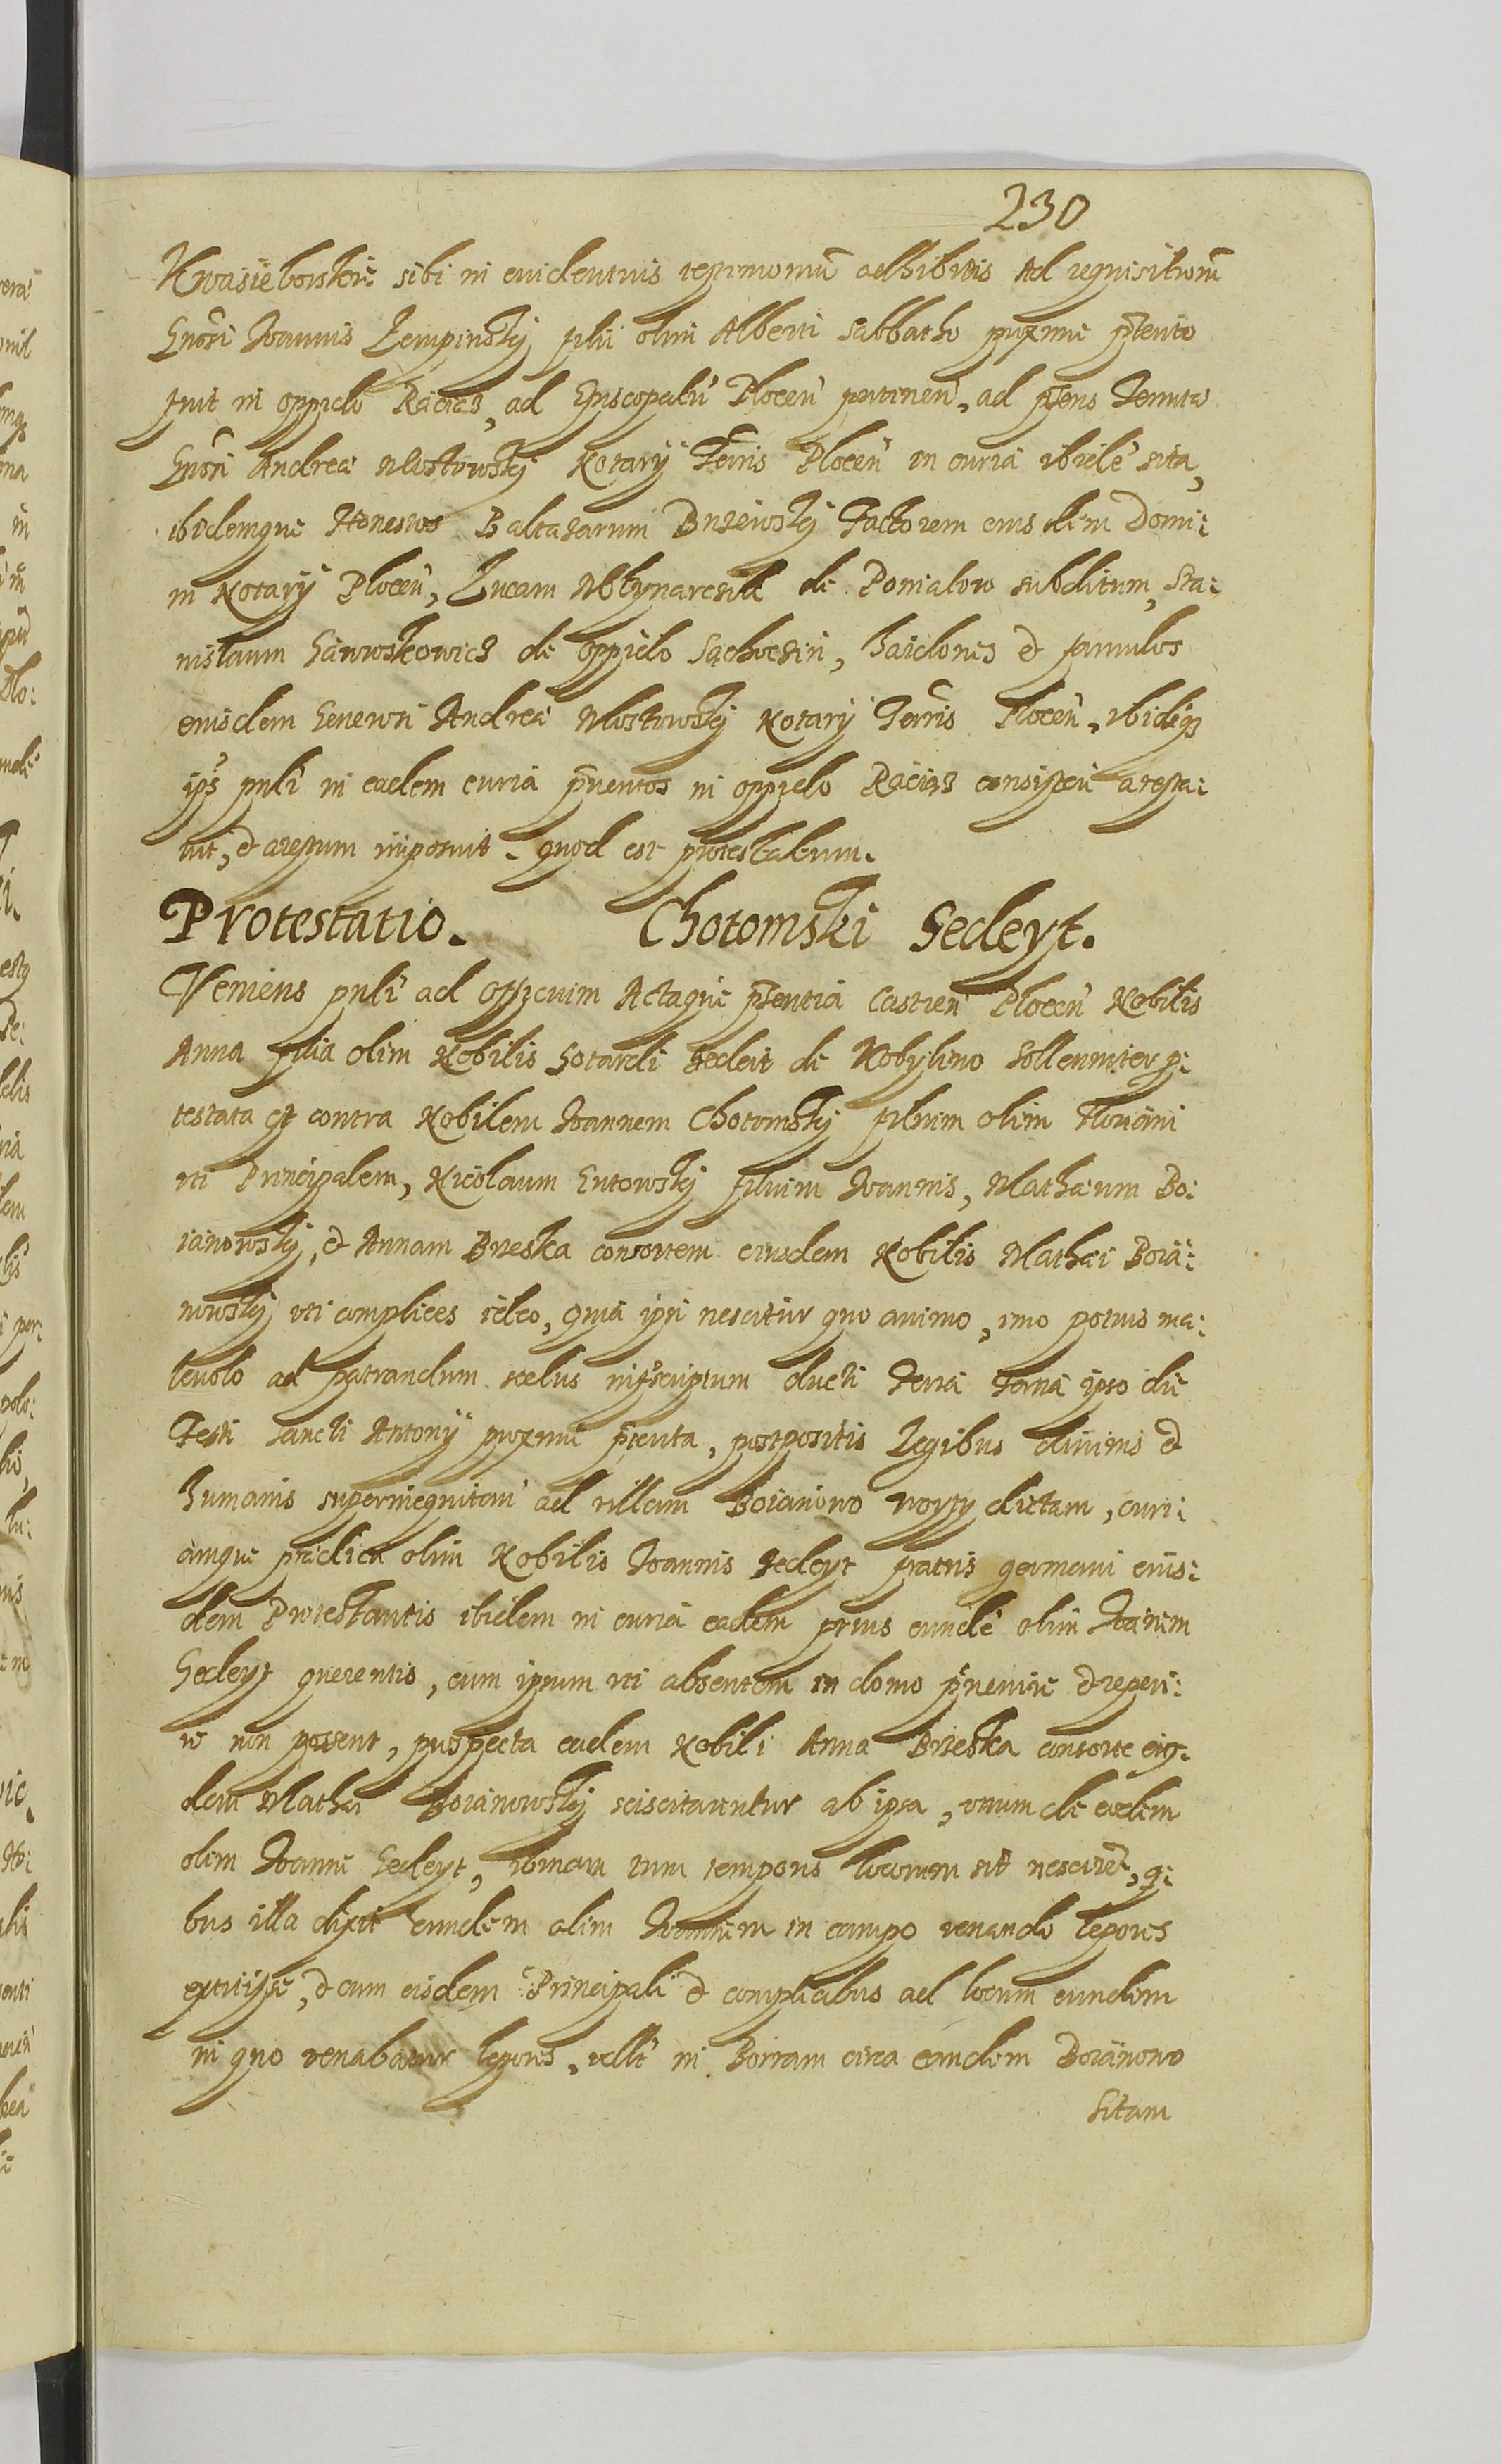 230
Kwasieborskie sibi in euidentius testimoniũ adhibitis Ad requisitionẽ
Gñosi Joannis Zempinskÿ filii olim Alberti Sabbatho proxime p̃terito
fuit in oppido Raciąz, ad Episcopatũ Plocen̄ pertinen̄, ad p̃sens Tenutæ
Gñosi Andreæ Mlostowskÿ Notarÿ Terris Plocen̄ in curia ibidẽ sita,
ibidemque Honestos Baltazarum Brzewskÿ Factorem eius dem Domi:
ni Notarÿ Plocen̄, Lucam Młynarczik de Poniatow subditum, Sta:
nislaum Gawroskowicz de oppido Sochoczin, Haidones & famulos
eiusdem Generosi Andreæ Mlostowskÿ Notarÿ Terris Plocen̄, ibidẽq3
ip̃s pñli in eadem curia p̃uentos in oppido Raciąz consisten̄ aresta:
uit, & arestum imposuit. quod est protestatum.
Protestatio. Chotomski Gedeyt.
Veniens pñli ad Officium Actaque p̃sentia Castren̄ Plocen̄ Nobilis
Anna filia olim Nobilis Gotardi Gedeit de Kobylino sollenniter p:
testata est contra Nobilem Joannem Chotomskÿ filium olim Floriani
vti Principalem, Nicolaum Gutowskÿ filium Joannis, Mathæum Bo:
ianowskÿ, & Annam Brzeska consortem eiusdem Nobilis Mathæi Boia:
nowskÿ vti complices ideo, quia ipsi nescitur quo animo, imo potius ma:
leuolo ad patrandum scelus infrascriptum ducti feria tertia ipso die
Festi Sancti Antonÿ proxime p̃terita, postpositis Legibus diuinis &
humanis superinequitan̄ ad villam Boianowo Nowy dictam, curi:
amque prædicti olim Nobilis Joannis Gedeyt fratris germani eius:
dem Protestantis ibidem in curia eadem prius eundẽ olim Joañem
Gedeyt querentis, cum ipsum vti absentem in domo p̃uenire & reperi:
re non possent, prospecta eadem Nobili Anna Brzeska consorte eius:
dem Mathæi Boianowskÿ sciscitarentur ab ipsa, vnum de eodem
olim Joanne Gedeyt, vbinam tum temporis locorum sit nesciret, q:
bus illa dixit eundem olim Joannem in campo venando lepores
extitisse, & cum eisdem Principali & complicibus ad locum eundem
in quo venabatur lepores, vllt̃ in Borram circa eandem Boianowo
sitam